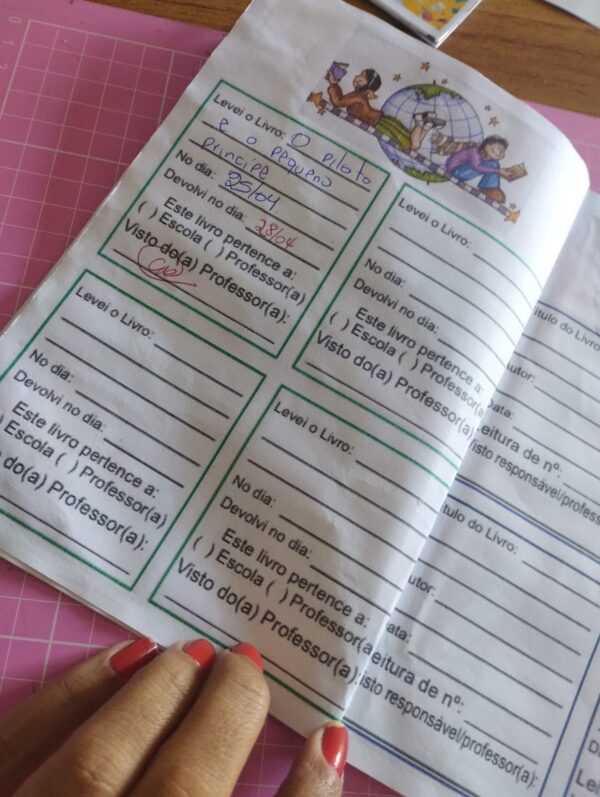 Levei o Livro: O piloto
e o pequeno
principe
No dia: 25/04
Devolvi no dia: 28/04
Este livro pertence a:
( ) Escola ( ) Professor(a)
Visto do(a) Professor(a):
Levei o Livro:
No dia:
Devolvi no dia:
Este livro pertence a:
( ) Escola ( ) Professor(a)
Visto do(a) Professor(a):
Levei o Livro:
No dia:
Devolvi no dia:
Este livro pertence a:
) Escola ( ) Professor(a)
do(a) Professor(a):
Levei o Livro:
No dia:
Devolvi no dia:
Este livro pertence a:
( ) Escola ( ) Professor(a
Visto do(a) Professor(a):
ítulo do Livro
utor:
Data:
eitura de nº:
isto responsável/profess
tulo do Livro:
utor:
ata:
eitura de nº:
isto responsável/professor(a):